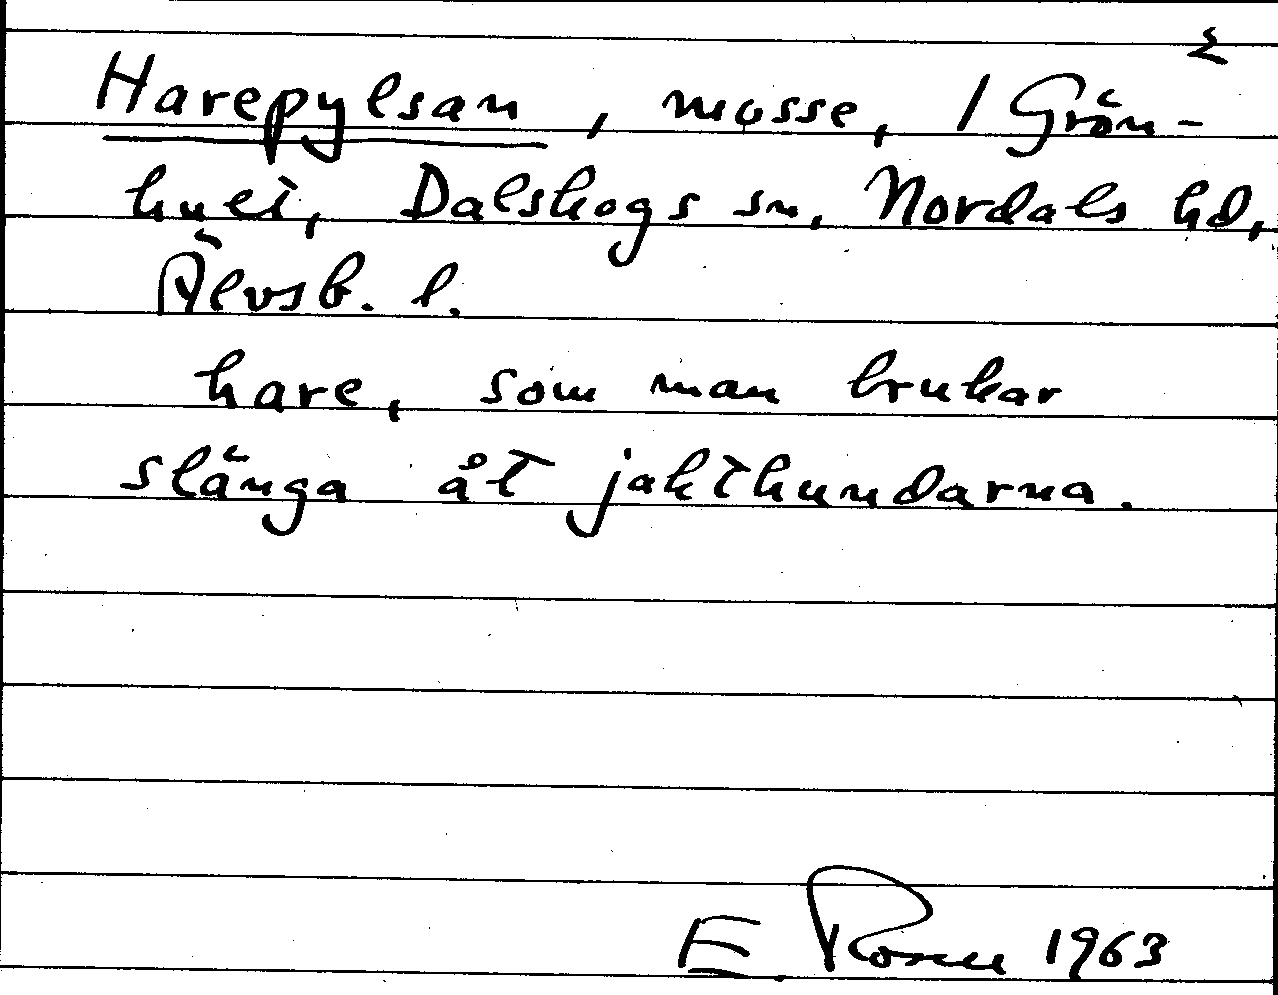 Harepylsan, mosse, 1 Grön-
huei, Dalskogs sn, Nordals hd,
Älvsb. l.
hare, som man brukar
slänga åt jakthundarna.
E. Rosen 1963